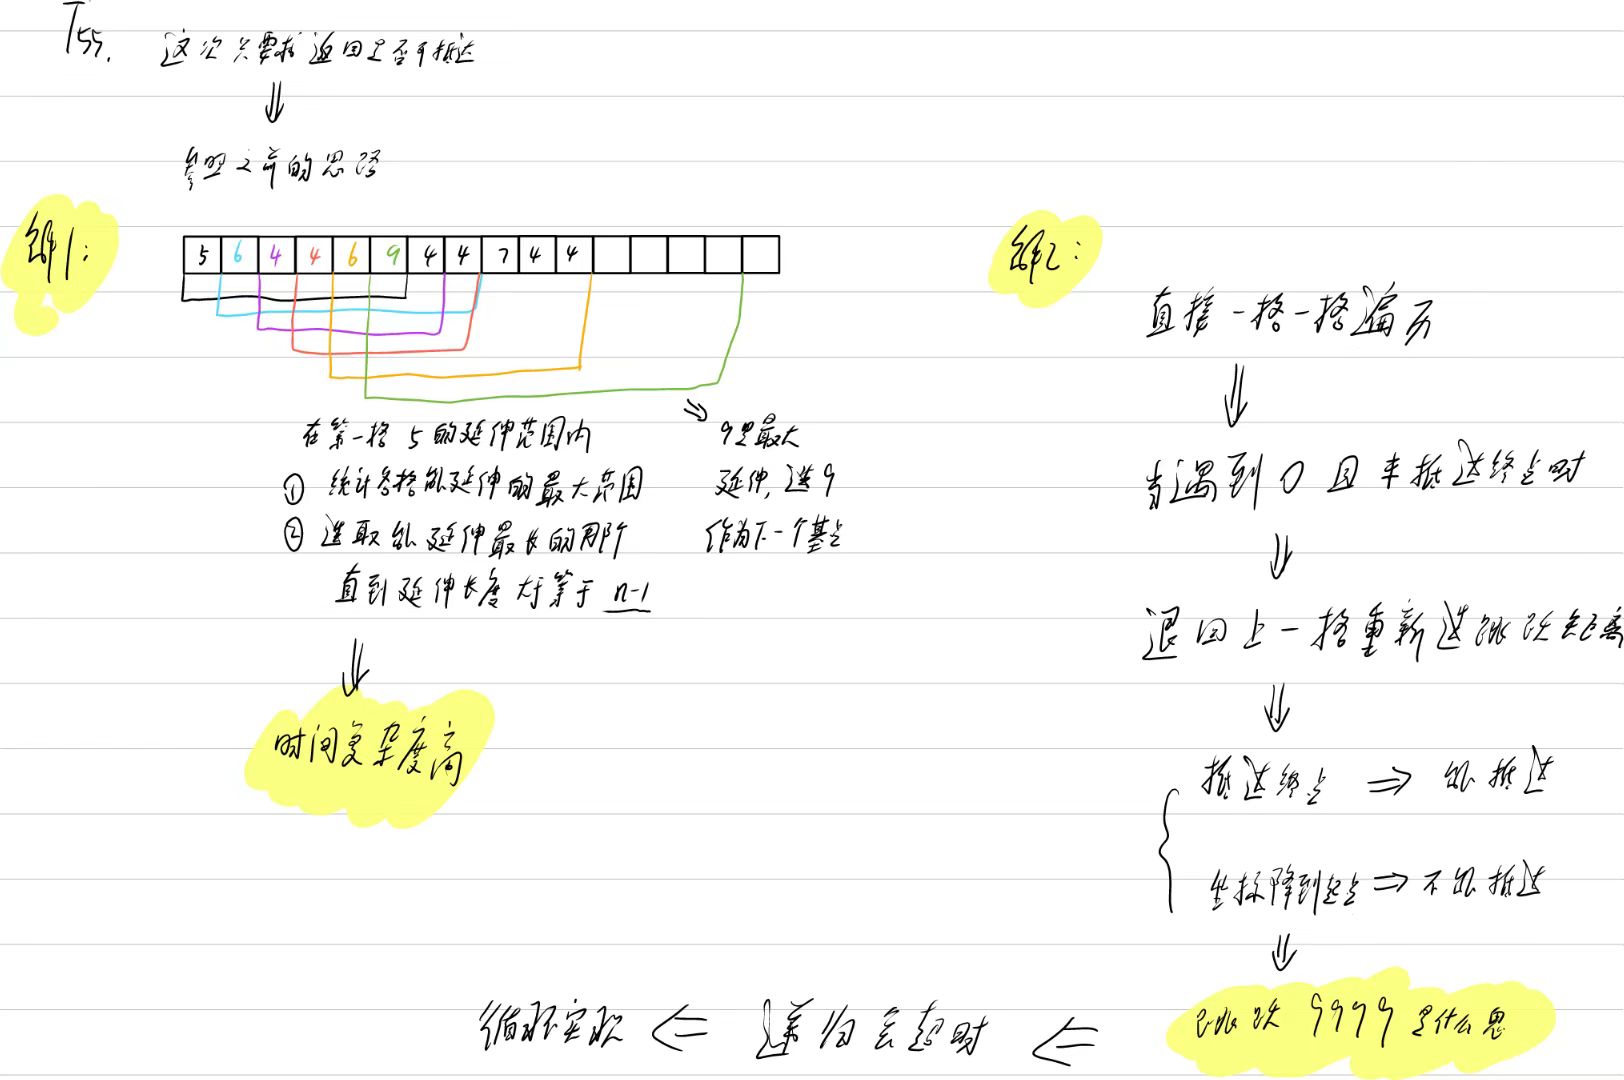 T55. 这次只要求返回是否可抵达
⇓
参照之前的思路
解1:
5 6 4 4 6 9 4 4 7 4 4
在第一格 5 的延伸范围内
① 统计各格能延伸的最大范围
② 选取能延伸最长的那个
直到延伸长度大于等于 n-1
⇘ 9是最大
延伸, 选9
作为下一个基点
⇓
时间复杂度高
解2:
直接一格一格遍历
⇓
当遇到 0 且未抵达终点时
⇓
退回上一格重新选跳跃距离
⇓
抵达终点 ⇒ 能抵达
坐标降到起点 ⇒ 不能抵达
⇓
跳跃 9999 是什么鬼
⇐ 递归会超时
⇐ 循环实现